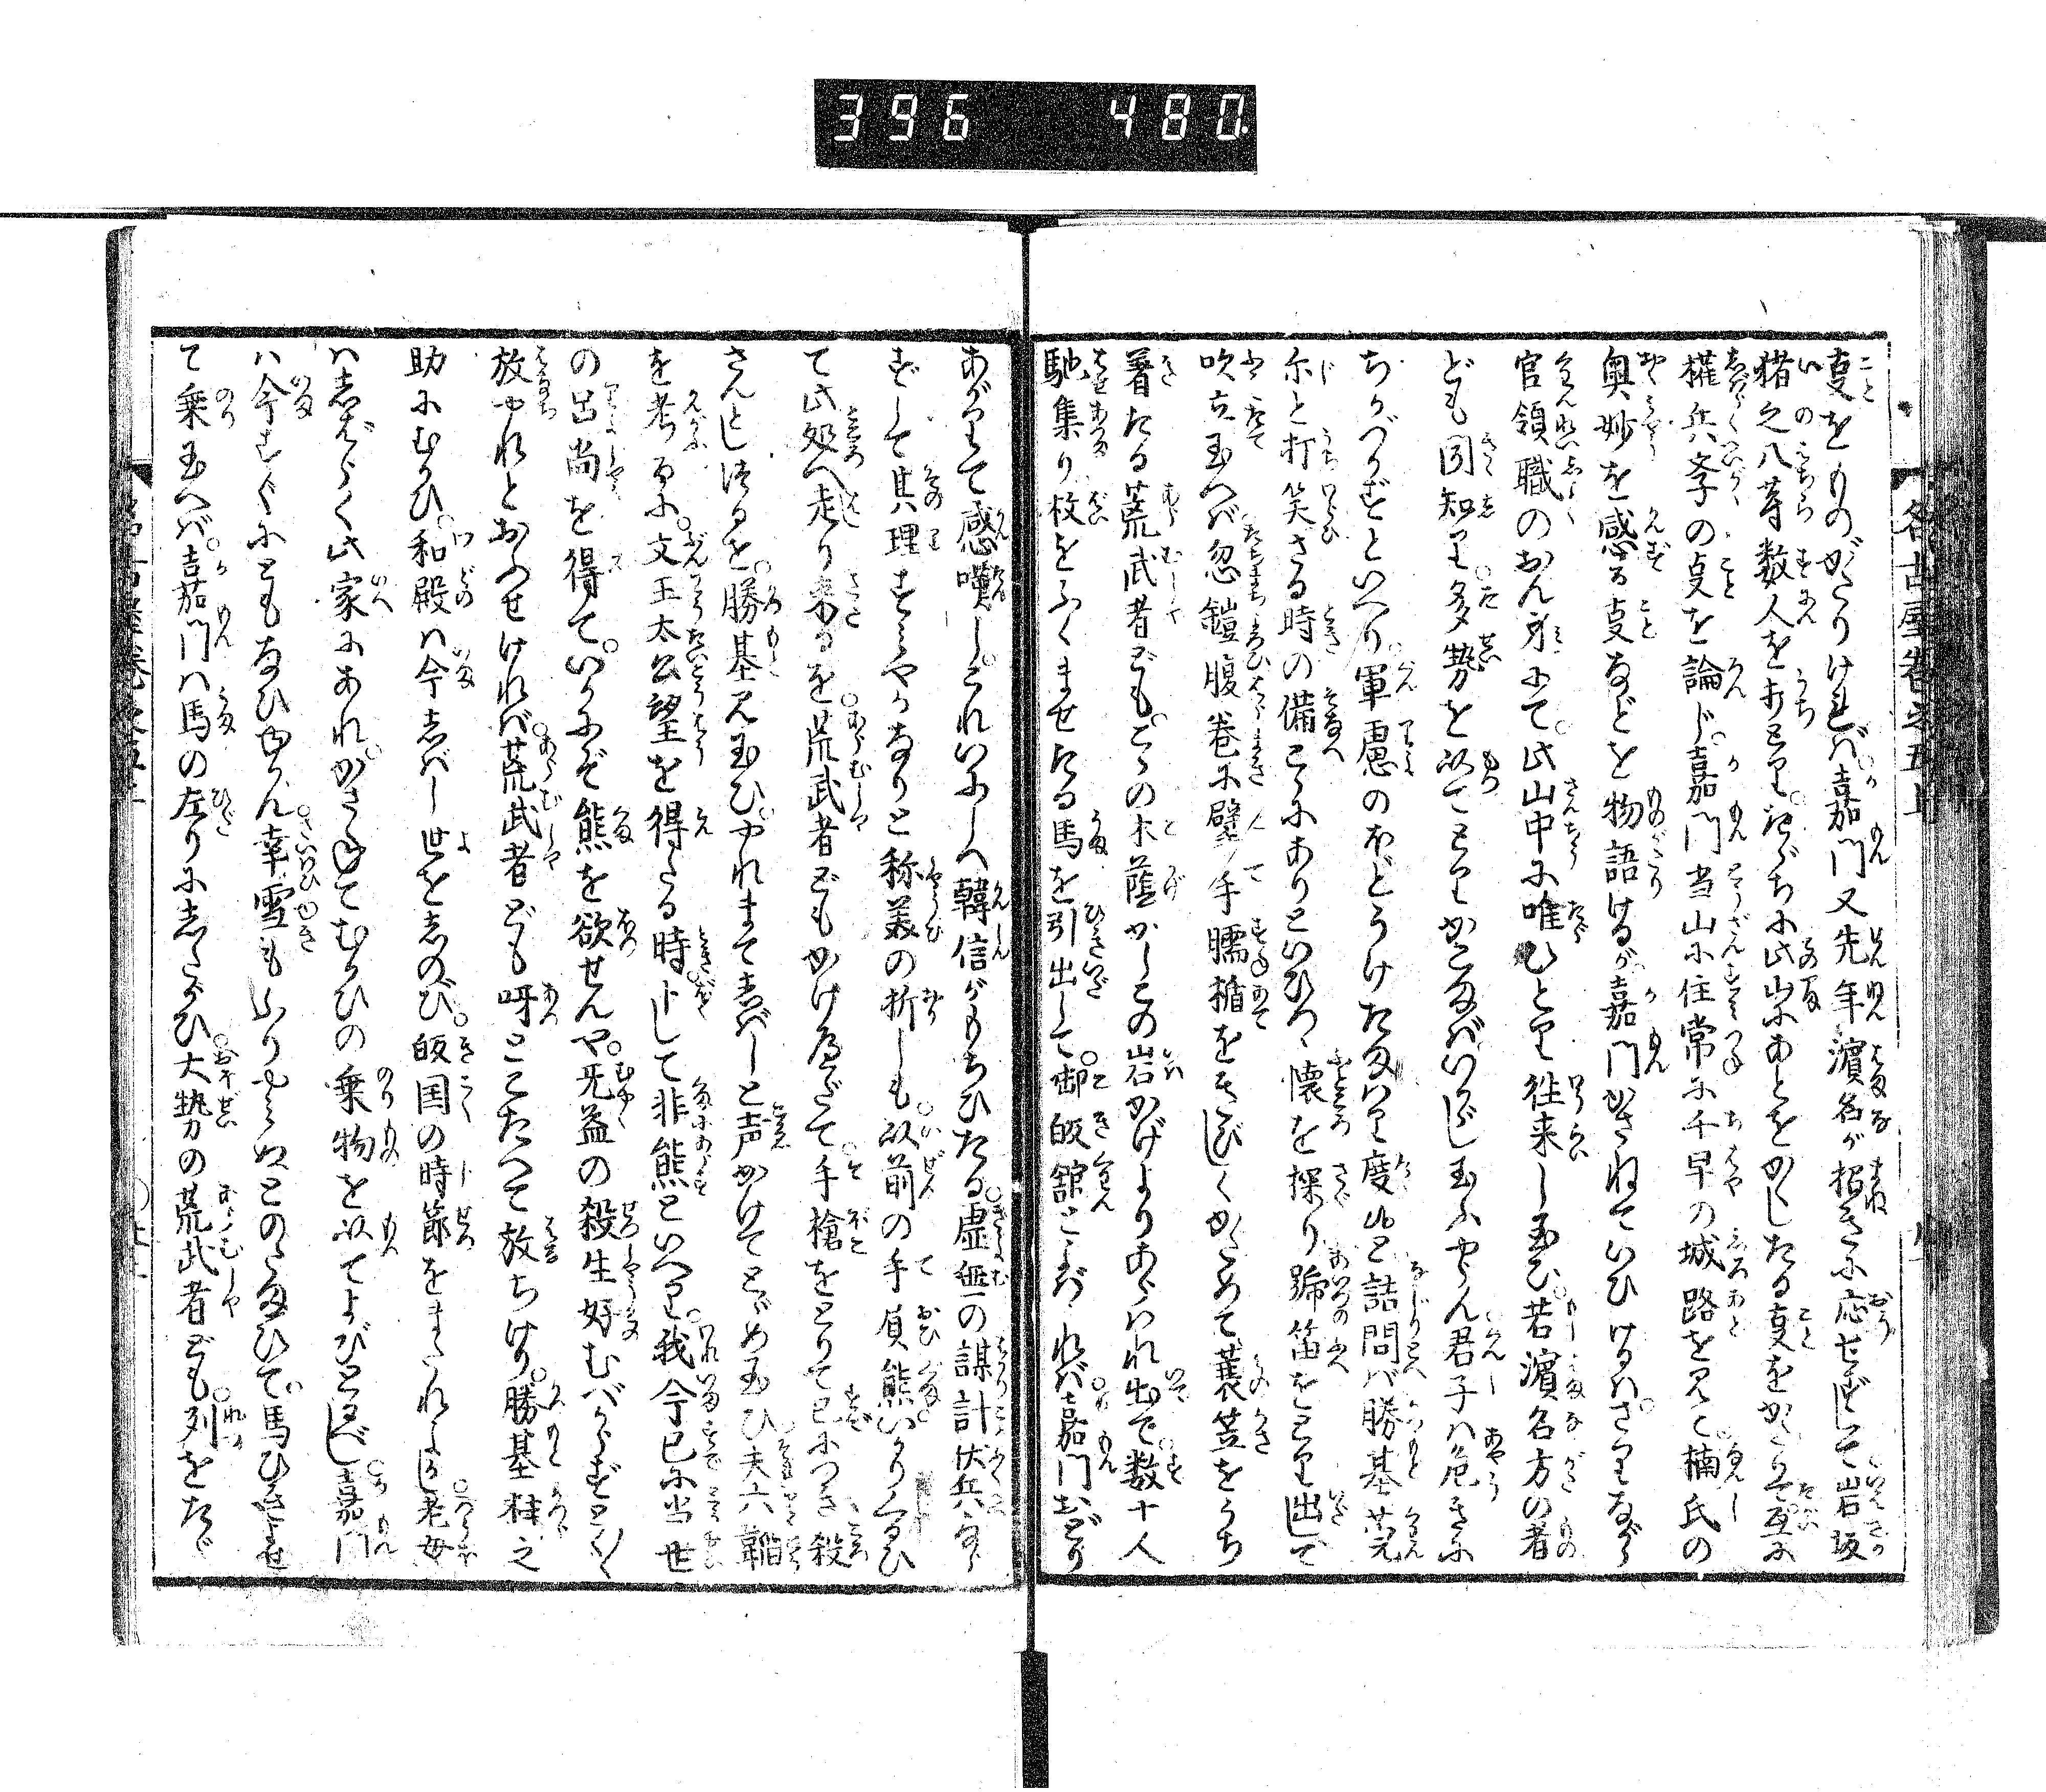 396 480
事をものがたりければ。嘉門又先年濱名が招きに応せずして岩坂
猪之八等数人をうち
権兵衛の事を論じ。嘉門当山に住常に千早の城跡を見て。楠氏の
奥妙を感る事などを物語けるが嘉門かさねていひけるは。さりながら
官領職のおん身にて。此山中に唯ひとり往来し玉ひ。若濱名方の者
ども聞知り。多勢を以てとりかこまばいかゞし玉ふやらん君子は危きに
ちかづかずといへり。軍慮のほどうけたまはり度候と詰問ば勝基莞
尓と打笑さる時の備こゝにありといひつゝ懐を探り號笛をとり出して
吹立玉へば。忽鎧腹巻に躄手臑楯をきびしくかためて蓑笠をうち
着たる荒武者ども。こゝの木蔭かしこの岩かげよりあらはれ出で。数十人
馳集り枚をふくませたる馬を引出して。御皈舘とよばゝれば。嘉門おどり
あがりて感嘆し。これいにしへ韓信がもちひたる。虚無の謀計伏兵
ずして其理すみやかなりと称美の折しも。以前の手負熊いかりくるひ
て此処へ走り来るを。荒武者どもかけへだて。手槍をとりて已につき殺
さんとしけるを。勝基見玉ひ。やれまてしばしと声かけてとゞめ玉ひ。夫六韜
を考るに。文王太公望を得たる時。卜して非熊といへり。我今已に当世
の呂尚を得て。いかにぞ熊を欲せんや。無益の殺生好むべからずとく〳〵
放やれとおふせければ。荒武者ども呀とこたへて放ちけり。勝基桂之
助にむかひ。和殿は今しばし世をしのび。皈国の時節をまたれよかし。老母
はしばらく此家にあれ。かさねてむかひの乗物を以てよびとるべし。嘉門
は今すぐにともなひゆかん。幸雪もふりやみぬとのたまひて。馬ひきよせ
て乗玉へば。嘉門は馬の左りにしたがひ。大勢の荒武者ども。列をたゞ